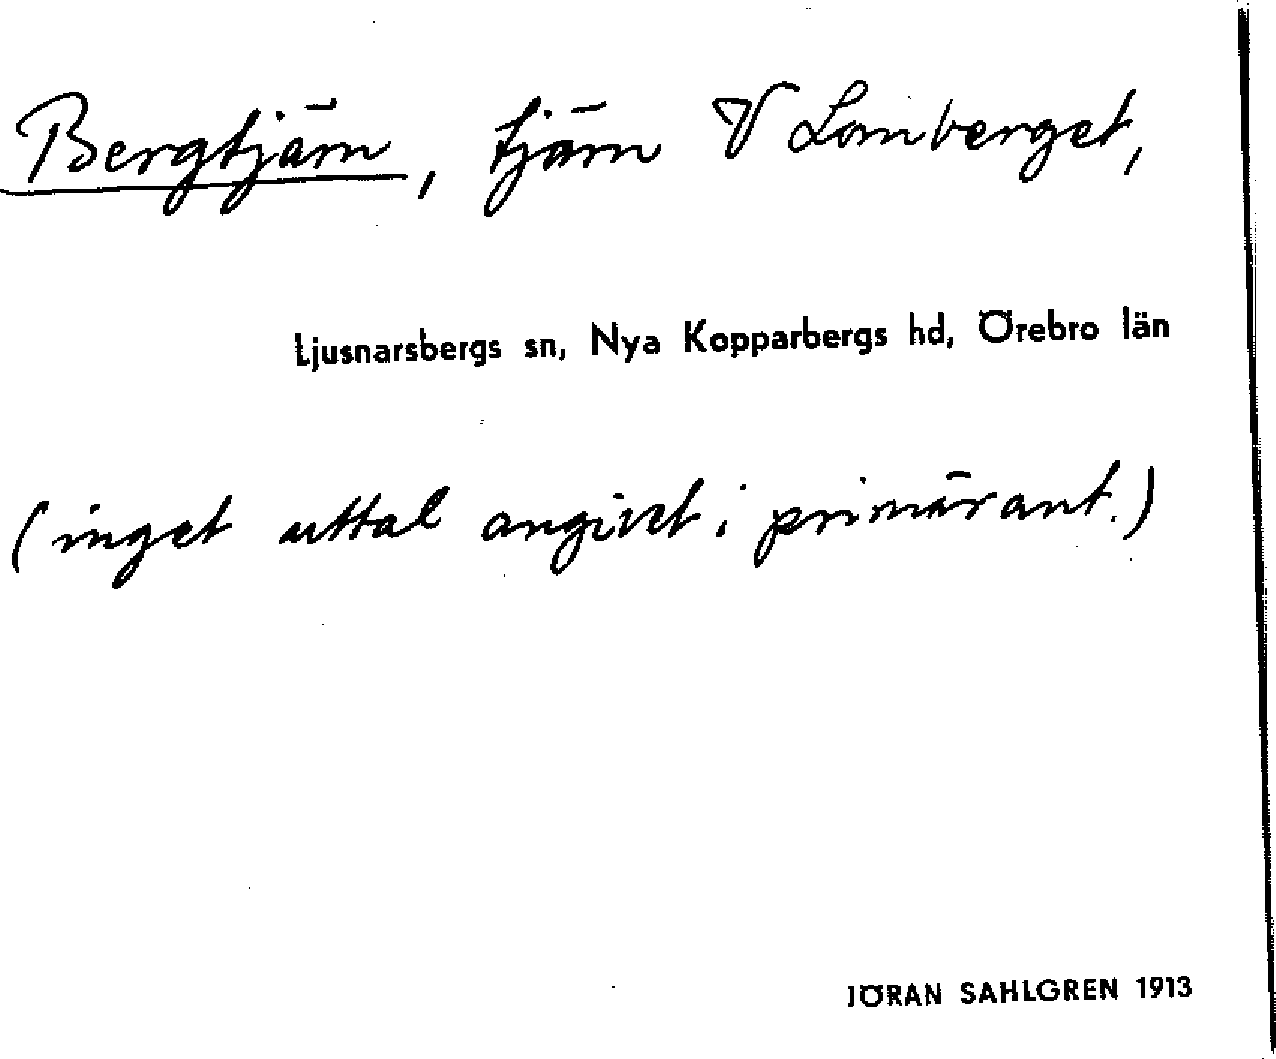 Bergtjärn, tjärn V Lomberget,
Ljusnarsbergs sn, Nya Kopparbergs hd, Örebro län
(inget uttal angivet i primärant.)
JÖRAN SAHLGREN 1913